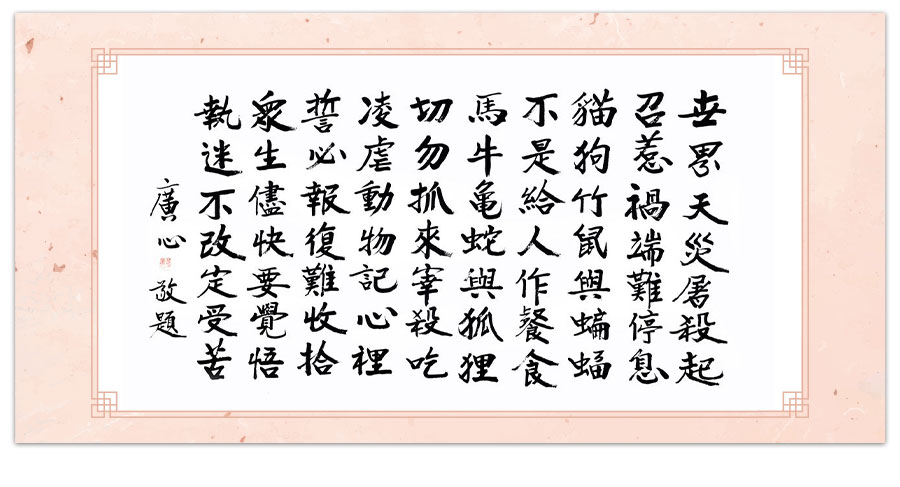 世界天災屠殺起
召惹禍端難停息
貓狗竹鼠與蝙蝠
不是給人作餐食
馬牛龜蛇與狐狸
切勿抓來宰殺吃
凌虐動物記心裡
誓必報復難收拾
眾生儘快要覺悟
執迷不改定受苦
廣心 敬題